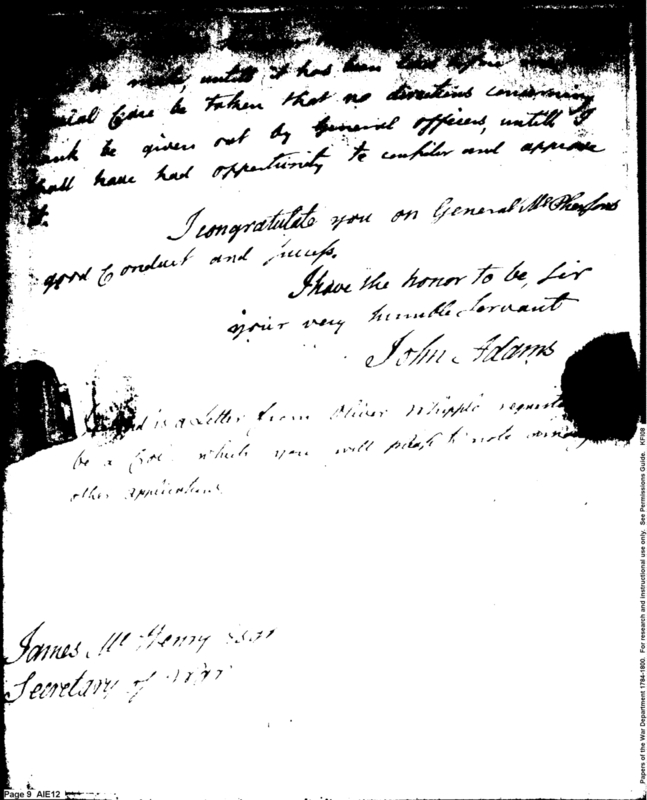 be made, untill it has been laid before me
Care be taken that no directions concerning
rank be given out by General officers, untill I
shall have had opportunity to consider and approve
it.
I congratulate you on General McPhersons
good Conduct and success.
I have the honor to be, Sir
your very humble Servant
John Adams
is a Letter from Oliver Whipple
be a which you will please to note among
other applications
James McHenry Esqr
Secretary of War
Page 9 AIE12
Papers of the War Department 1784-1800. For research and instructional use only. See Permissions Guide. KF/08